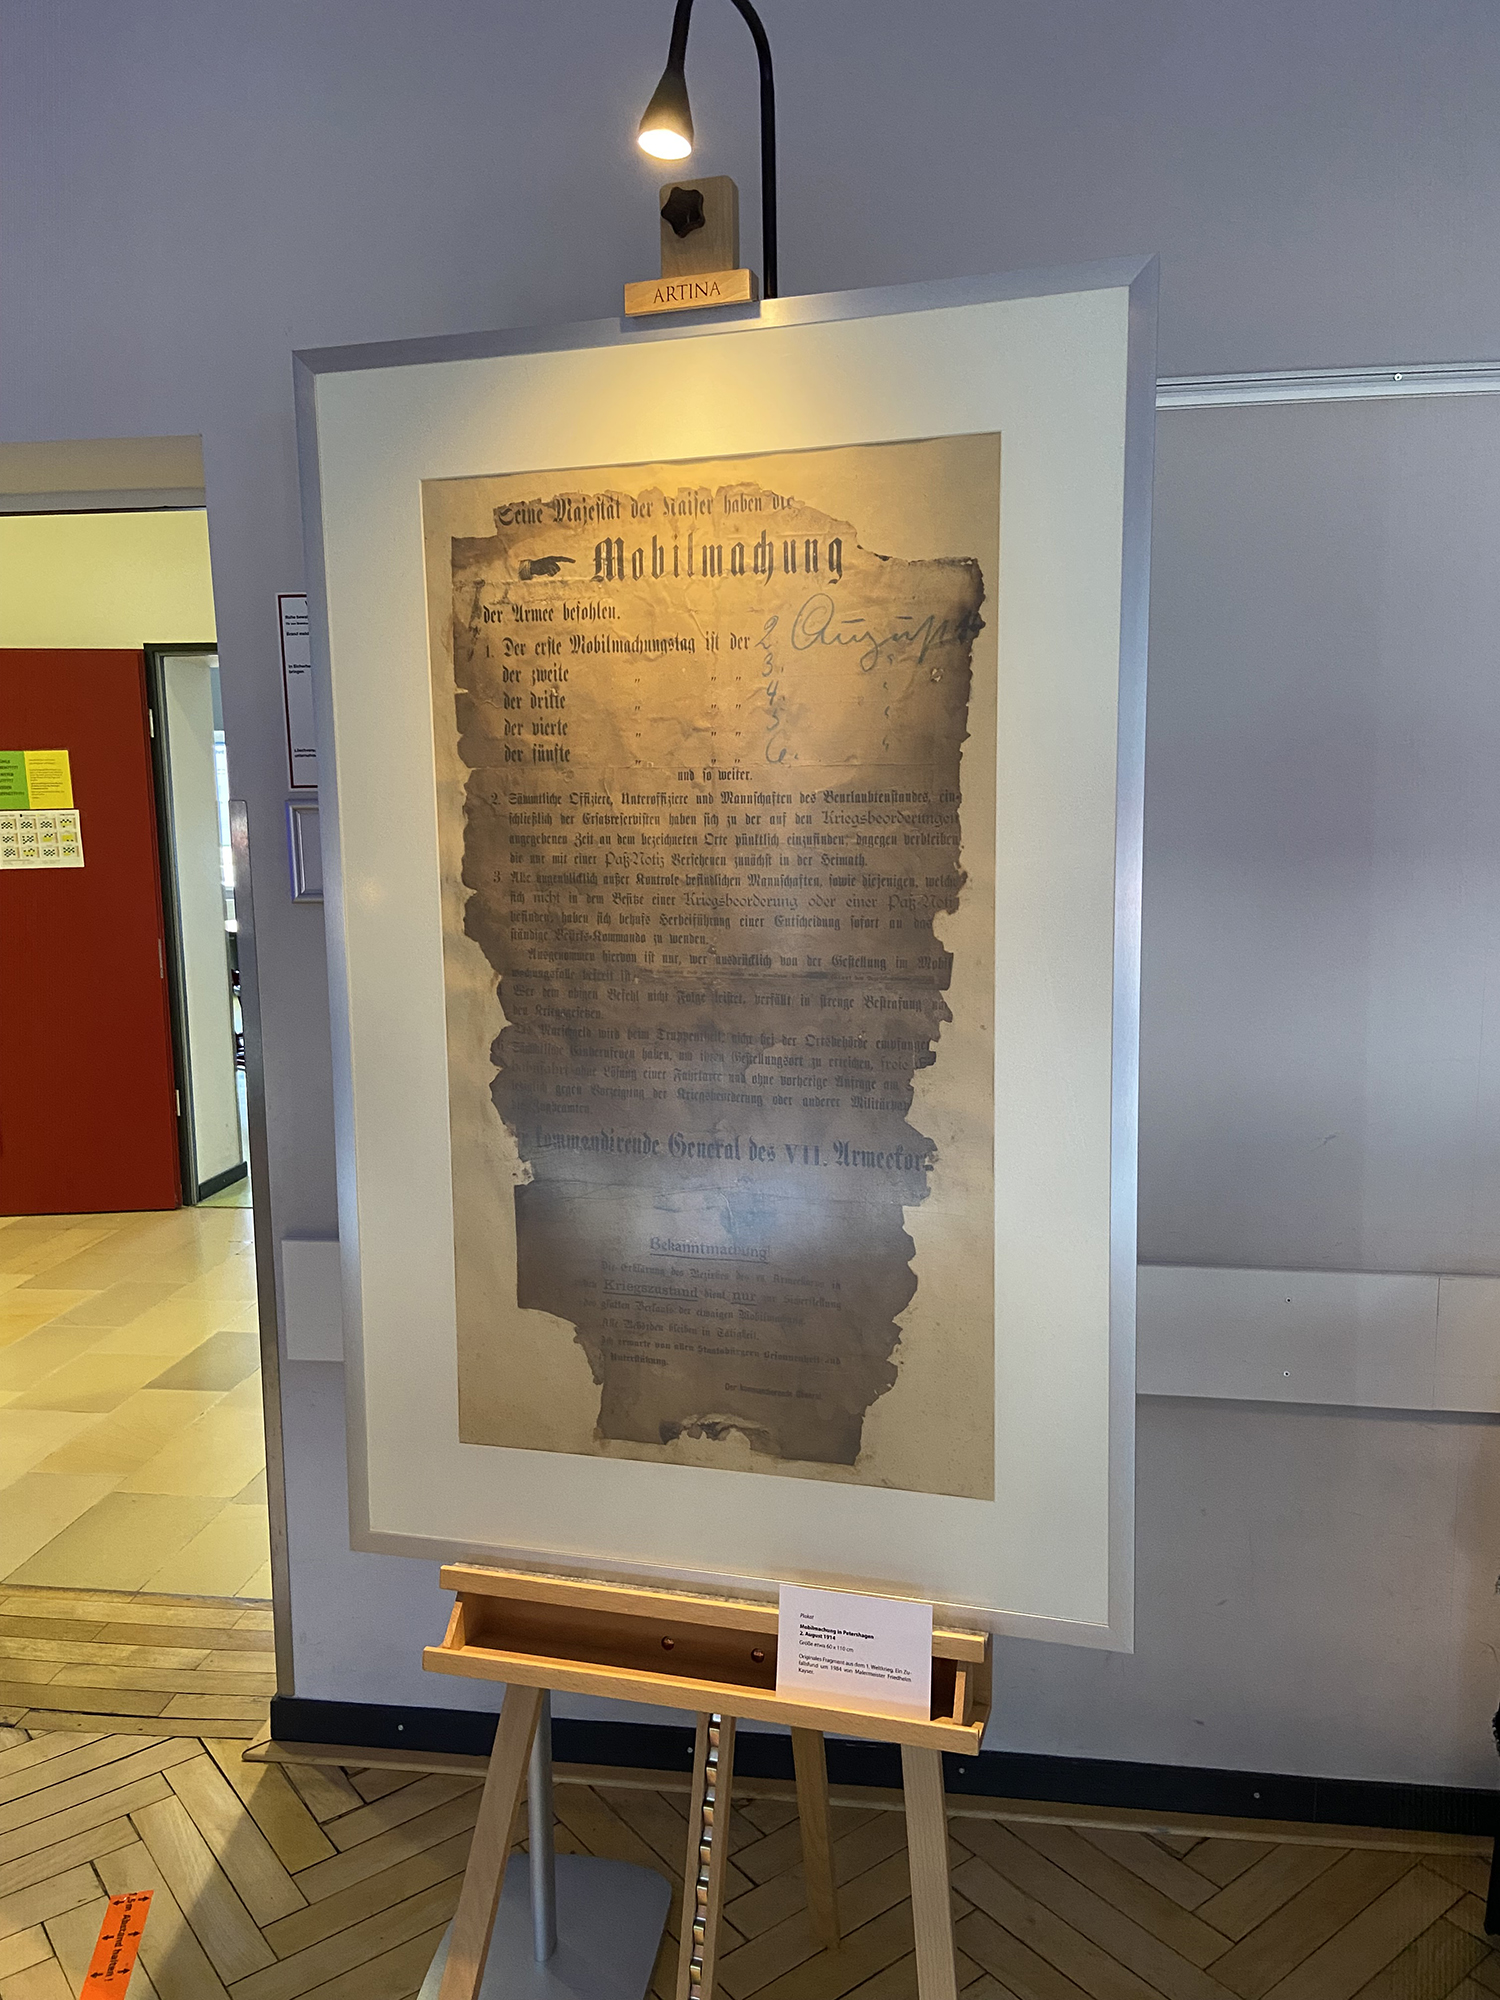 ARTINA
Seine Majestät der Kaiser haben die
Mobilmachung
der Armee befohlen.
1. Der erste Mobilmachungstag ist der 2 August
der zweite „ „ „ 3.
der dritte „ „ „ 4.
der vierte „ „ „ 5
der fünfte „ „ „ 6.
und so weiter.
2. Sämmtliche Offiziere, Unteroffiziere und Mannschaften des Beurlaubtenstandes, ein-
schließlich der Ersatzreservisten haben sich zu der auf den Kriegsbeorderungen
angegebenen Zeit an dem bezeichneten Orte pünktlich einzufinden; dagegen verbleiben
die nur mit einer Paß-Notiz Versehenen zunächst in der Heimath.
3. Alle augenblicklich außer Kontrole befindlichen Mannschaften, sowie diejenigen, welch
sich nicht in dem Besitze einer Kriegsbeorderung oder einer Paß-Noti
befinden, haben sich behufs Herbeiführung einer Entscheidung sofort an das
ständige Bezirks-Kommando zu wenden.
Ausgenommen hiervon ist nur, wer ausdrücklich von der Gestellung im Mobil
machungsfalle befreit ist
Wer dem obigen Befehl nicht Folge leistet, verfällt in strenge Bestrafung
den Kriegsgesetzen.
Das Marschgeld wird beim Truppentheil, nicht bei der Ortsbehörde empfangen
Sämmtliche Einberufenen haben, um ihren Gestellungsort zu erreichen, freie
bahnfahrt ohne Lösung einer Fahrkarte und ohne vorherige Anfrage am
gegen Vorzeigung der Kriegsbeorderung oder anderer Militärpa
kommandirende General des VII. Armeekor
Bekanntmachung!
Die Erklärung des Bezirkes des Armeekorps in
den Kriegszustand dient nur zur Sicherstellung
des glatten Verlaufs der etwaigen Mobilmachung.
Alle Behörden bleiben in Tätigkeit.
Ich erwarte von allen Staatsbürgern Besonnenheit und
Unterstützung.
Der kommandierende General
Plakat
Mobilmachung in Petershagen
2. August 1914
Größe etwa 60 x 110 cm
Originales Fragment aus dem 1. Weltkrieg. Ein Zu-
fallsfund um 1984 von Malermeister Friedhelm
Kayser.
1,5m Abstand halten!